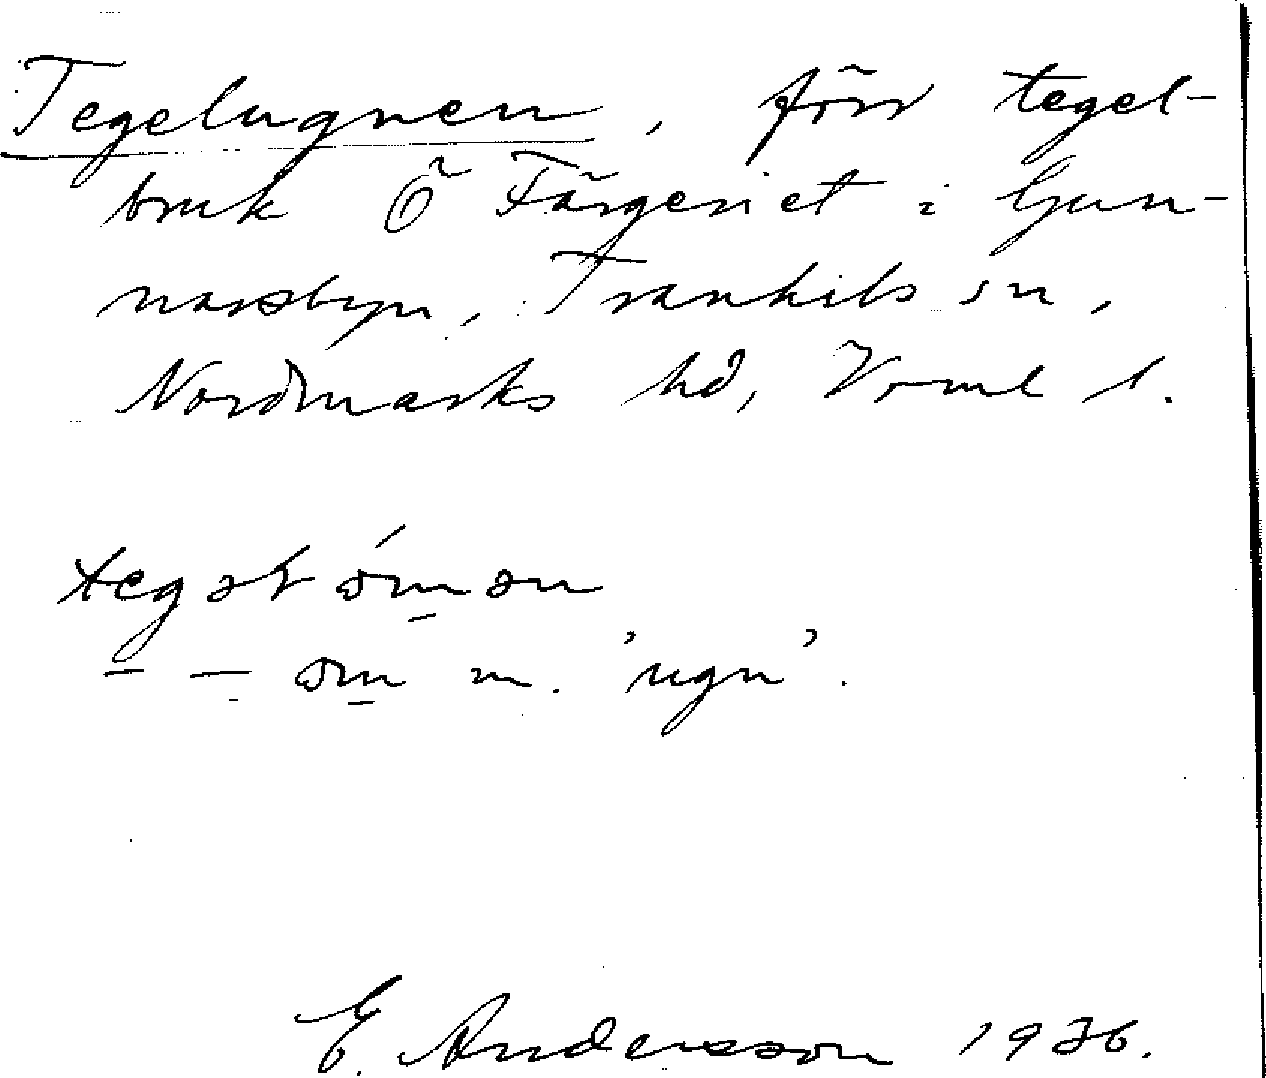 Tegelugnen, förr tegel-
bruk Ö Färgeriet i Gun-
narsbyn, Trankils sn,
Nordmarks hd, Vrml l.
tegəl ómən
– – om m. 'ugn'.
E. Andersson 1936.